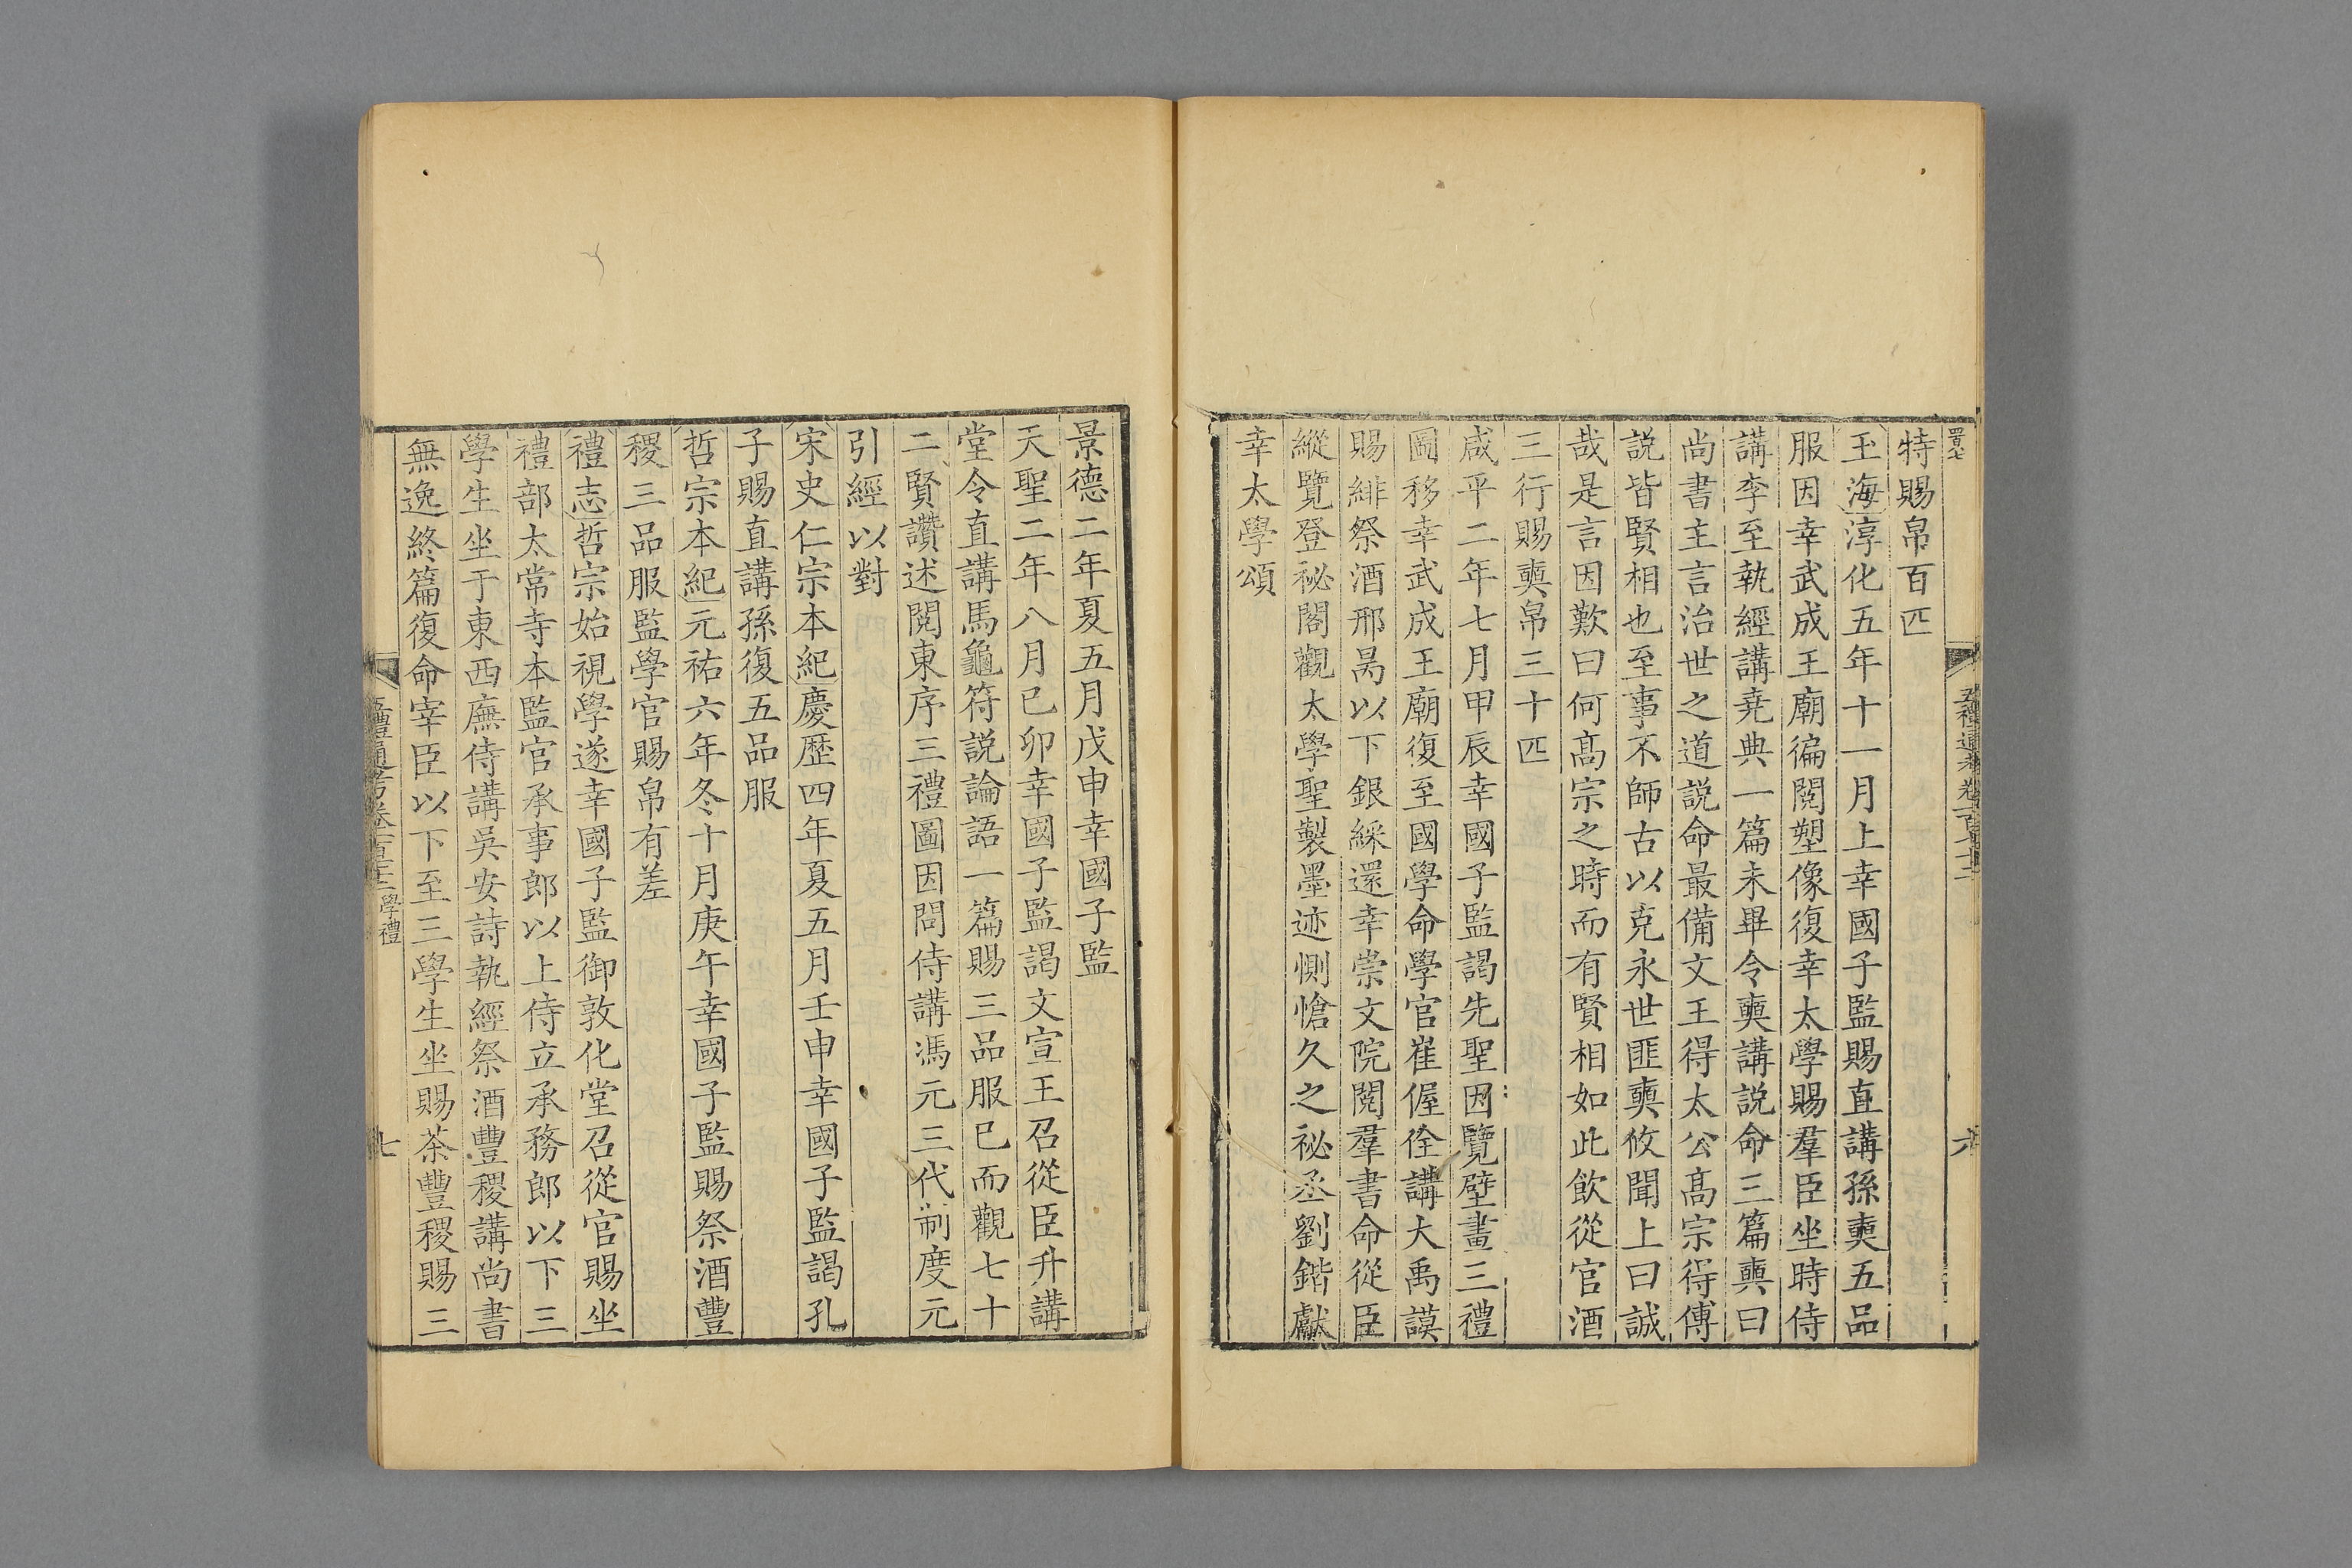 五禮通考卷一百七十二
六
特賜帛百匹
玉海淳化五年十一月上幸國子監賜直講孫奭五品
服因幸武成王廟徧閱塑像復幸太學賜羣臣坐時侍
講李至執經講堯典一篇未畢令奭講説命三篇奭曰
尚書主言治世之道説命最備文王得太公高宗得傅
説皆賢相也至事不師古以克永世匪奭攸聞上曰誠
哉是言因歎曰何高宗之時而有賢相如此飲從官酒
三行賜奭帛三十匹
咸平二年七月甲辰幸國子監謁先聖因覽壁畫三禮
圖移幸武成王廟復至國學命學官崔偓佺講大禹謨
賜緋祭酒邢昺以下銀綵還幸崇文院閱羣書命從臣
縱覽登祕閣觀太學聖製墨迹惻愴久之祕丞劉鍇獻
幸太學頌
景德二年夏五月戊申幸國子監
天聖二年八月已卯幸國子監謁文宣王召從臣升講
堂令直講馬龜符説論語一篇賜三品服已而觀七十
二賢讚述閱東序三禮圖因問侍講馮元三代制度元
引經以對
宋史仁宗本紀慶歷四年夏五月壬申幸國子監謁孔
子賜直講孫復五品服
哲宗本紀元祐六年冬十月庚午幸國子監賜祭酒豐
稷三品服監學官賜帛有差
禮志哲宗始視學遂幸國子監御敦化堂召從官賜坐
禮部太常寺本監官承事郎以上侍立承務郎以下三
學生坐于東西廡侍講吳安詩執經祭酒豐稷講尚書
無逸終篇復命宰臣以下至三學生坐賜茶豐稷賜三
五禮通考卷一百七十二 學禮
七